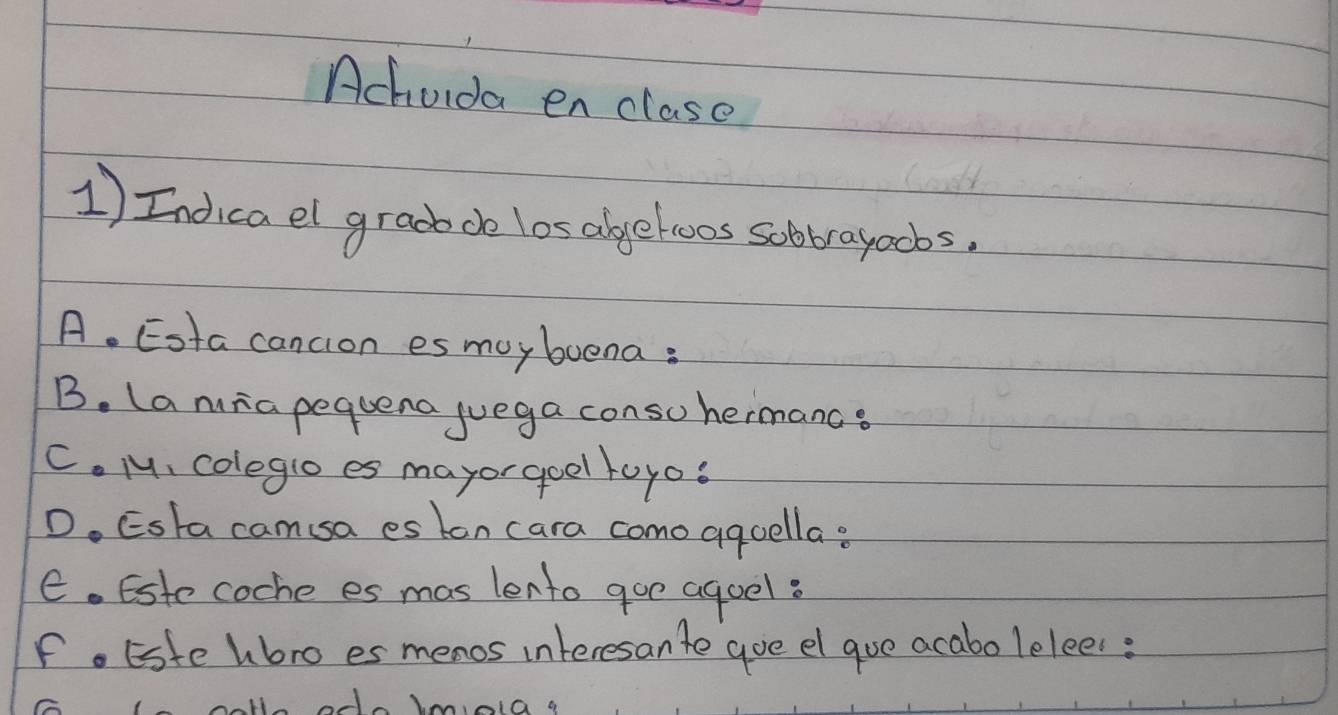 Activida en clase
1) Indica el grado de los abjetivos sobbrayados.
A. Esta cancion es muy buena:
B. La niña pequena juega con su hermana:
C. Mi colegio es mayor que el tuyo:
D. Esta camisa es tan cara como aquella:
E. Este coche es mas lento que aquel:
F. Este libro es menos interesante que el que acabo leleer: